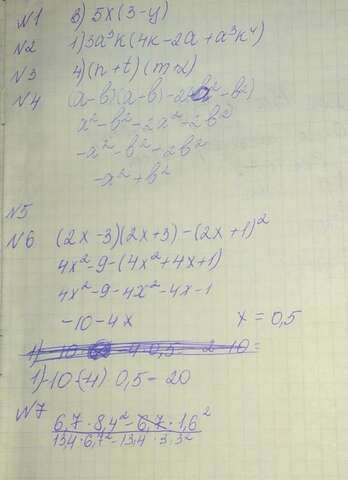 №1 3) 5x(3-y)
№2 1) 3a³k(4k-2a+a³k⁴)
№3 4) (n+t)(m-2)
№4 (a-b)(a-b)-2(a²-b²)
x²-b²-2x²-2b²
-x²-b²-2b²
-x²+b²
№5
№6 (2x-3)(2x+3)-(2x+1)²
4x²-9-(4x²+4x+1)
4x²-9-4x²-4x-1
-10-4x x=0,5
1)-10-(4)·0,5=20
№7
6,7·8,4²-6,7·1,6²
13,4·6,7²-13,4·3,3²